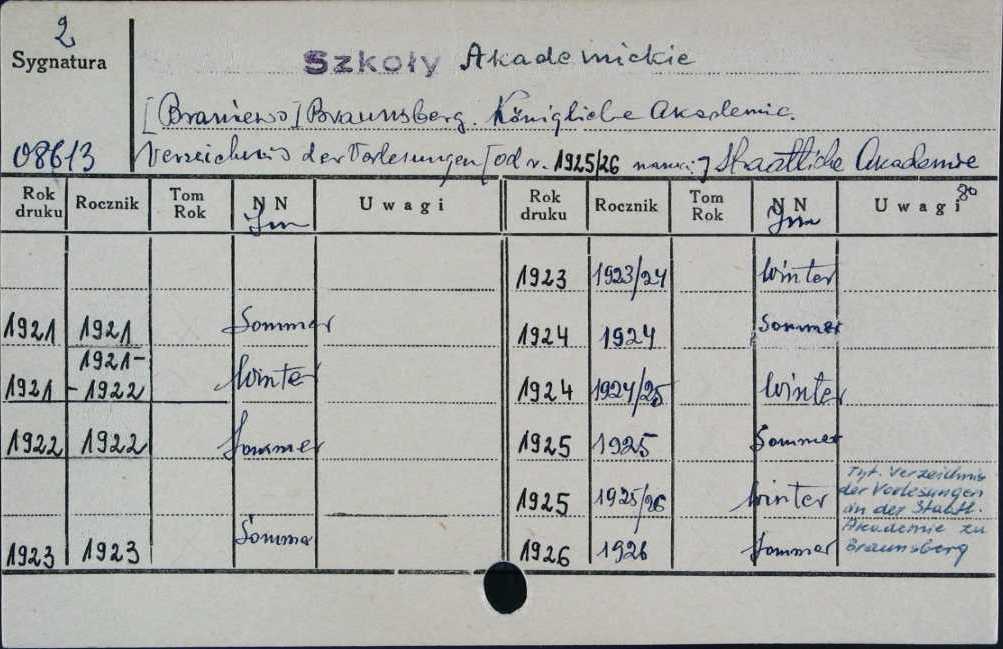 2
Sygnatura
08613
Szkoły Akademickie
[Braniewo] Braunsberg. Königliche Akademie.
Verzeichnis der Vorlesungen [od r. 1925/26 ] Staatliche Akademie
Rok druku Rocznik Tom Rok NN Uwagi Rok druku Rocznik Tom Rok NN Uwagi
1923 1923/24 Winter
1921 1921 Sommer 1924 1924 Sommer
1921 1921-
-1922 Winter 1924 1924/25 Winter
1922 1922 Sommer 1925 1925 Sommer
1925 1925/26 Winter Tyt. Verzeichnis
der Vorlesungen
an der Staatl.
Akademie zu
Braunsberg
1923 1923 Sommer 1926 1926 Sommer